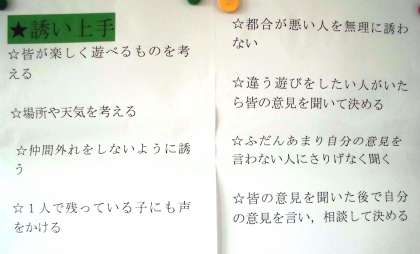 ★誘い上手
☆皆が楽しく遊べるものを考
える
☆場所や天気を考える
☆仲間外れをしないように誘
う
☆１人で残っている子にも声
をかける
☆都合が悪い人を無理に誘わ
ない
☆違う遊びをしたい人がいた
ら皆の意見を聞いて決める
☆ふだんあまり自分の意見を
言わない人にさりげなく聞く
☆皆の意見を聞いた後で自分
の意見を言い，相談して決める